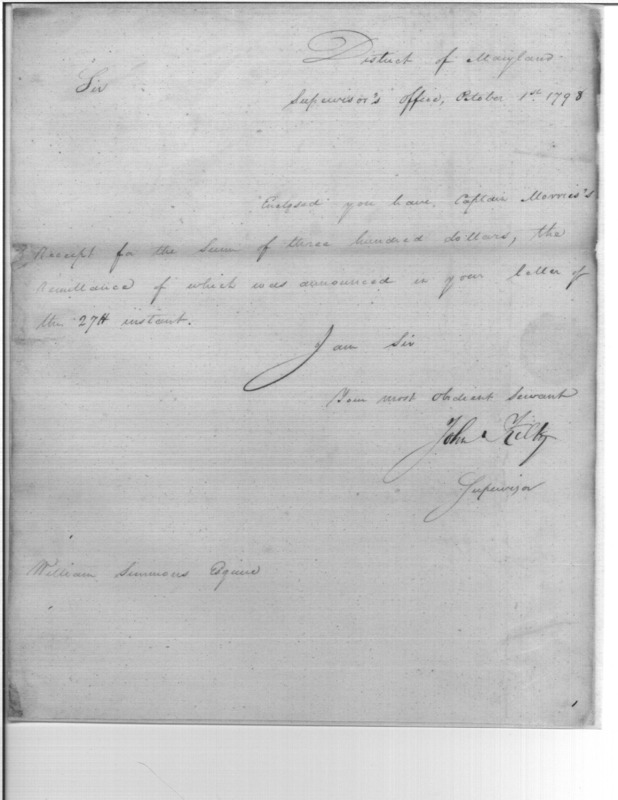 District of Maryland
Sir
Supervisor's Office, October 1st. 1798
Enclosed you have, Captain Morris's
Receipt for the Sum of three hundred dollars, the
Remittance of which was announced in your letter of
the 27th instant.
I am Sir
Your most obedient Servant
John Kilty
Supervisor
William Simmons Esquire